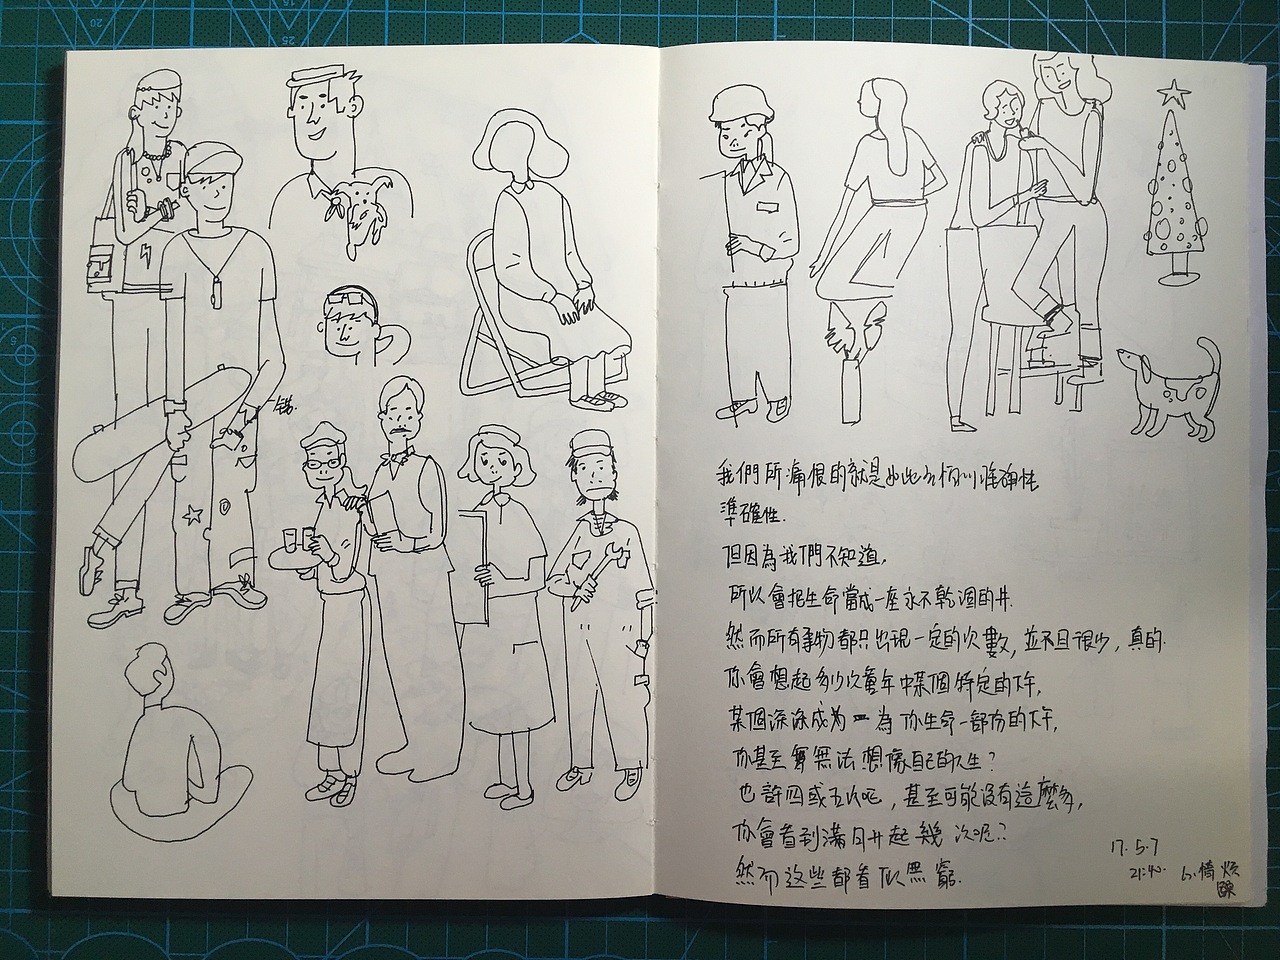 错.
我們所痛恨的就是如此
準確性.
但因為我們不知道,
所以會把生命當成一座永不乾涸的井.
然而所有事物都只出現一定的次數, 並不且很少, 真的.
你會想起多少次童年中某個特定的下午,
某個深深成為 為你生命一部份的下午,
你甚至 無法想像自己的人生?
也許四或五次吧, 甚至可能沒有這麼多,
你會看到滿月升起幾次呢?
然而这些都看似無窮.
17.5.7
21:40.